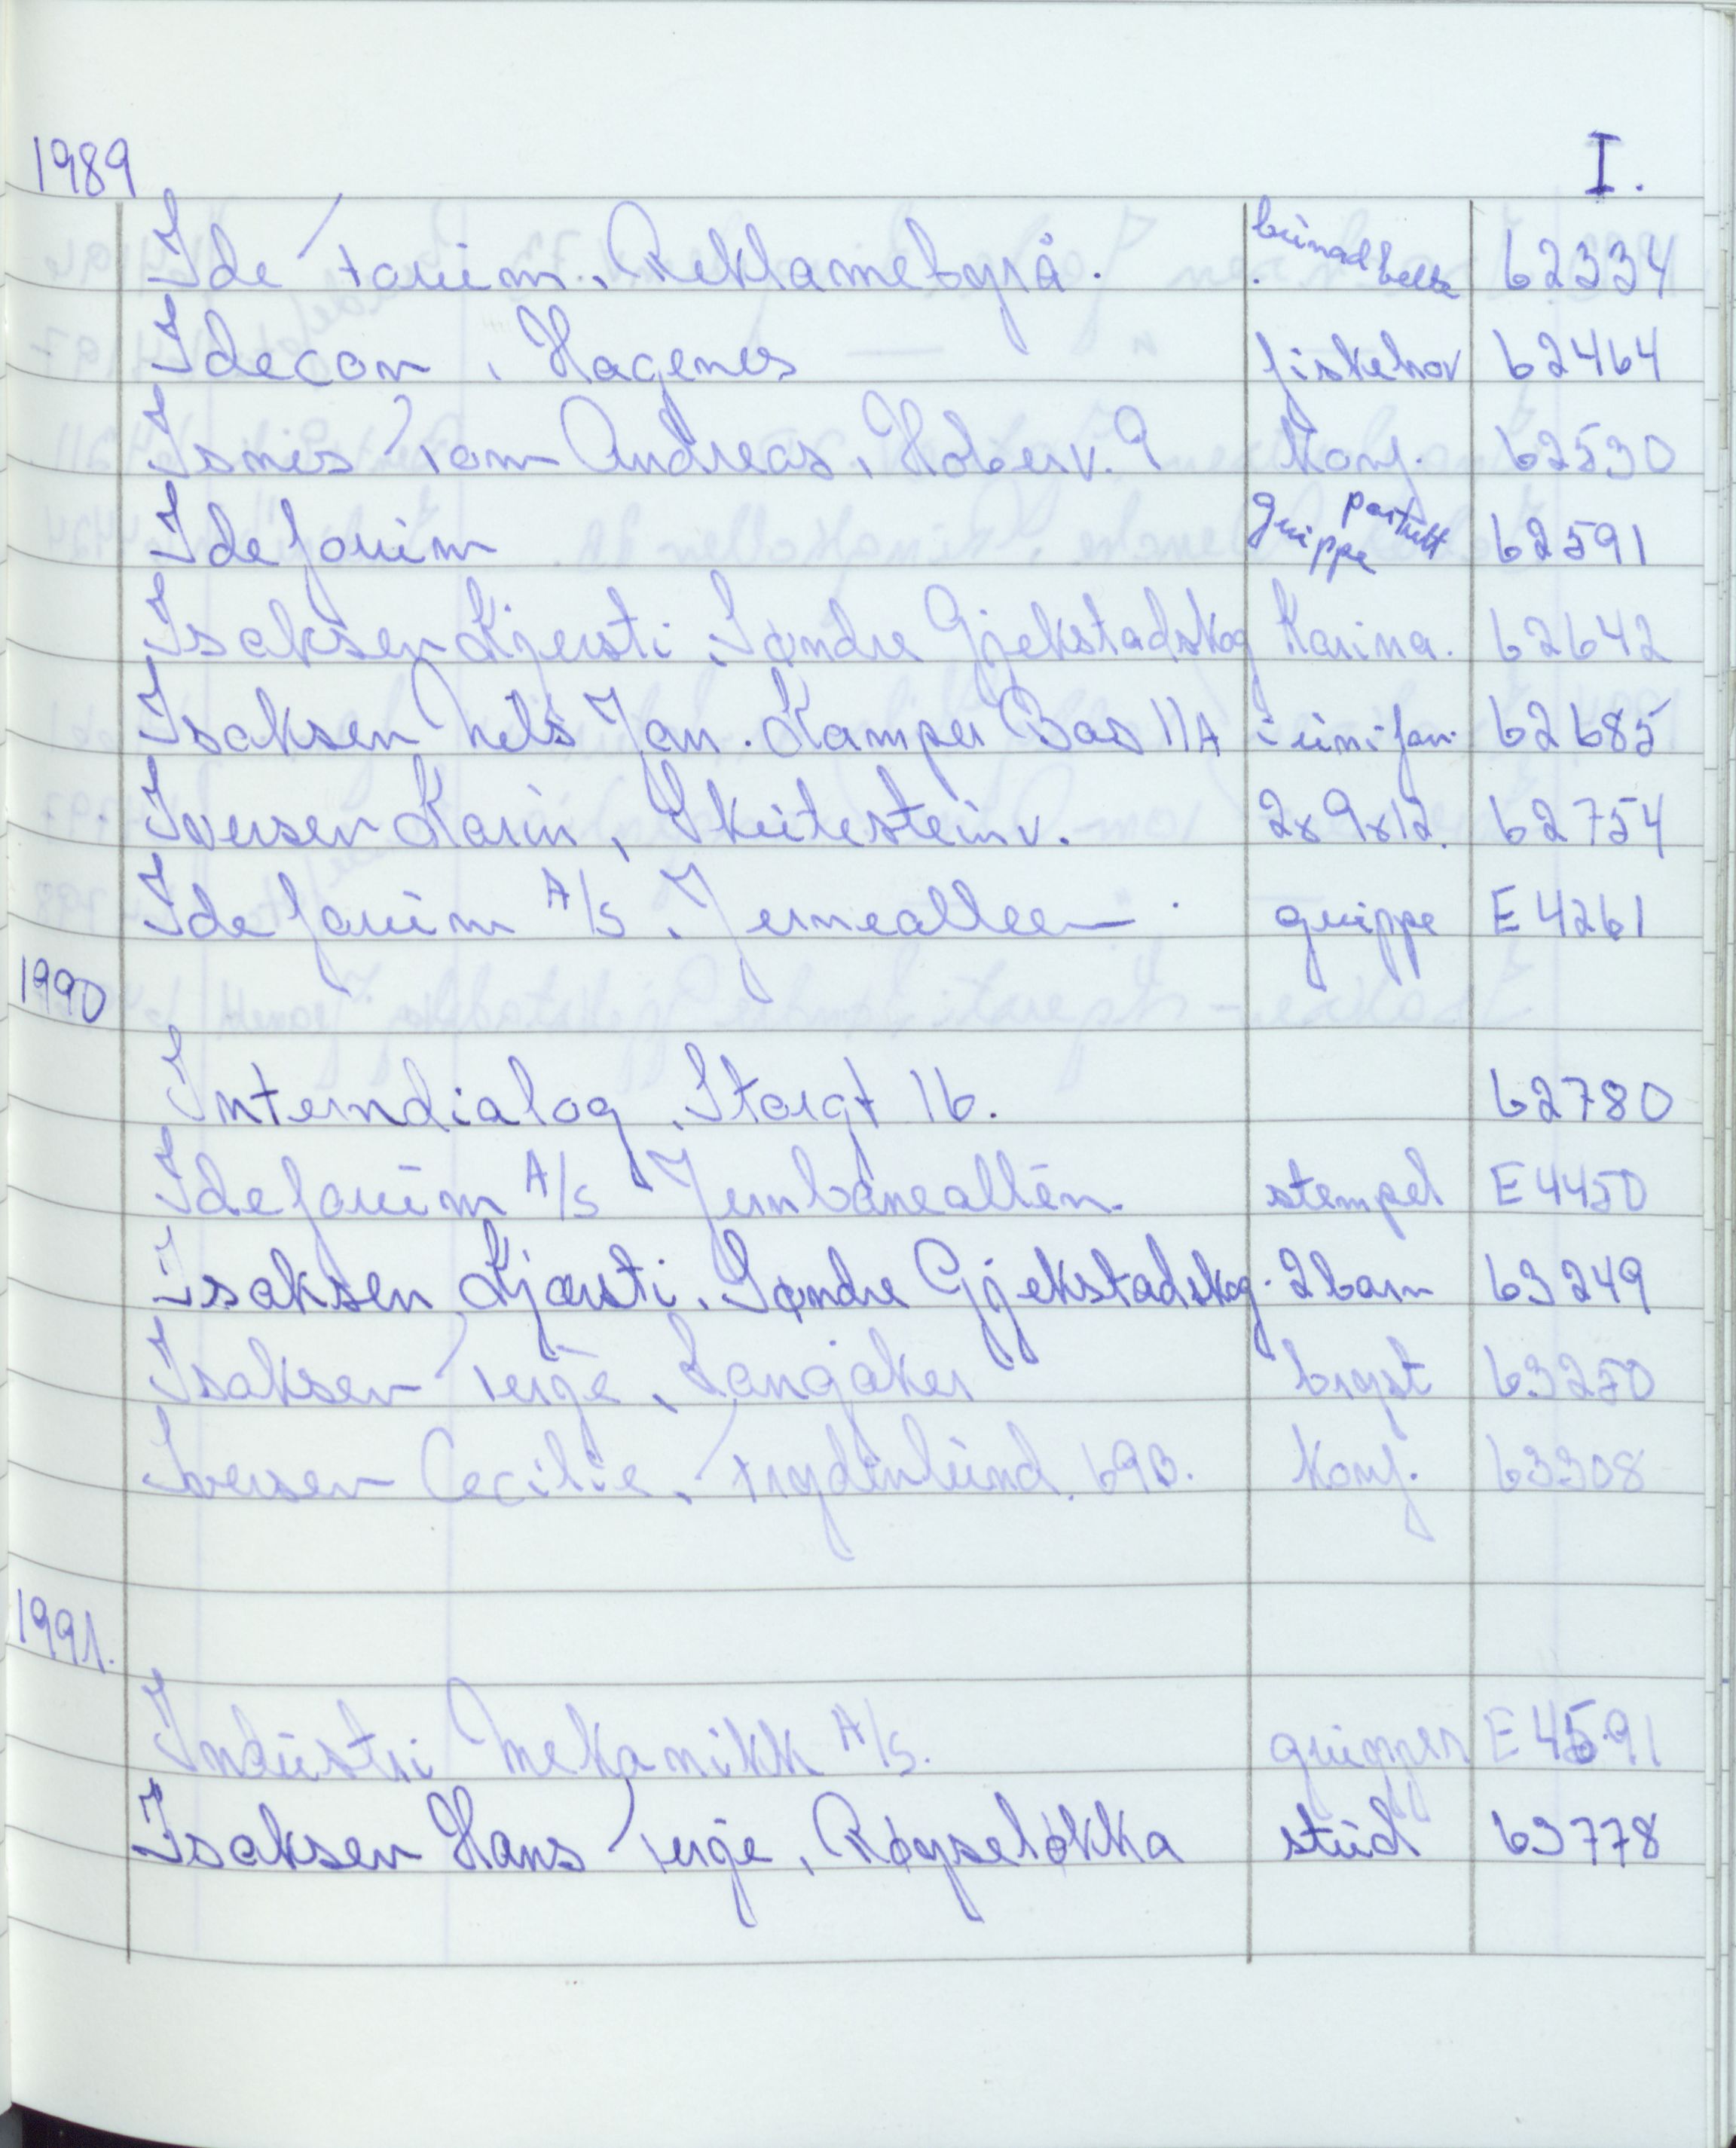 1989 I.
Ide Forum. Reklamebyrå. bunad belte 62334
Idecon, Hagenes fiskehov 62464
Isnes Tom Andreas, Hoberv. 9 Konf. 62530
Ideforum portrett gruppe 62591
Isaksen Kjersti, Søndre Gjekstadskog Karina. 62642
Isaksen Nels Jan. Kamper Bas 11A i unifor. 62685
Iversen Karin, Skiitesteinv. 2x9x12. 62754
Ideforum A/S. Jernealleen gruppe E4261
1990
Interndialog, Storgt 16. 62780
Ideforum A/S Jernbanealléen. stempel E4450
Isaksen Kjersti. Søndre Gjekstadskog. 2 barn 63249
Isaksen Terje, Langåker bryst 63250
Iversen Cecilie, Frydenlund. 69B. Konf. 63308
1991.
Industri Mekanikk A/S. grupper E4591
Isaksen Hans Terje, Røyseløkka stud 63778